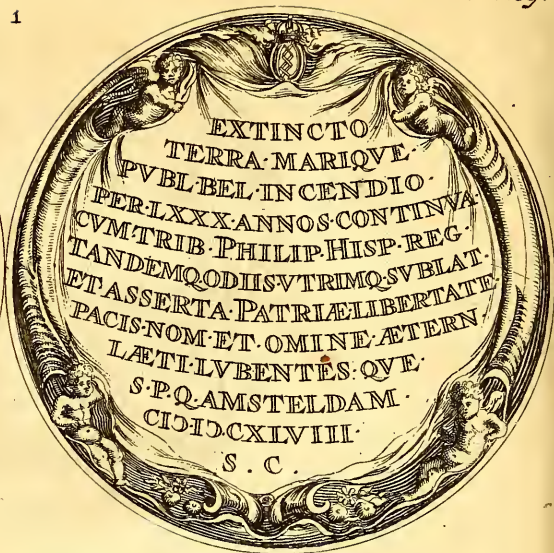 1
EXTINCTO
TERRA·MARIQVE·
PVBL·BEL·INCENDIO·
PER·LXXX·ANNOS·CONTINVA·
CVM·TRIB·PHILIP·HISP·REG·
TANDEMQ·ODIIS·VTRIMQ·SVBLAT·
ET ASSERTA·PATRIÆ·LIBERTATE·
PACIS·NOM·ET·OMINE·ÆTERN·
LÆTI·LVBENTES·QVE·
S·P·Q·AMSTELDAM·
CIƆ·IƆ·CXLVIII·
S·C·